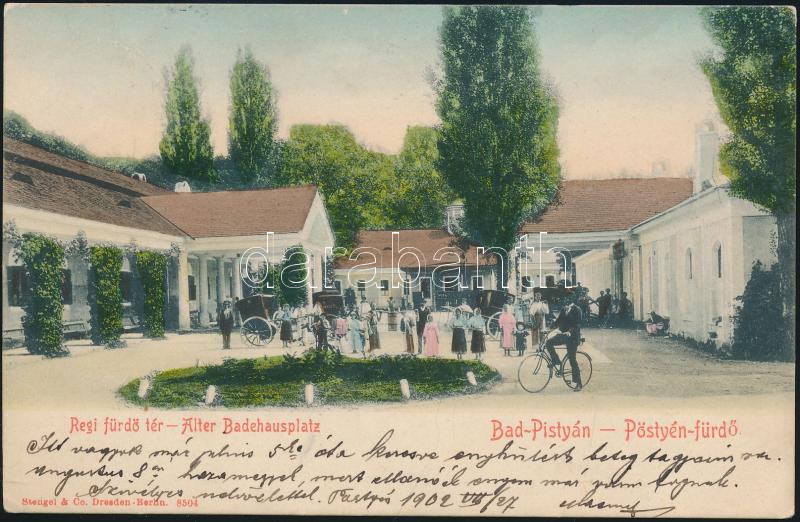 darabanth
Regi fürdö tér — Alter Badehausplatz
Bad-Pistyán — Pöstyén-fürdő.
Itt vagyok már julius 5ke óta keresve enyhülést beteg tagjaim
augusztus 8n hazamegyek, mert
Szivélyes üdvözlettel. Pöstyén 1902 VII/27
Stengel & Co. Dresden-Berlin. 8504